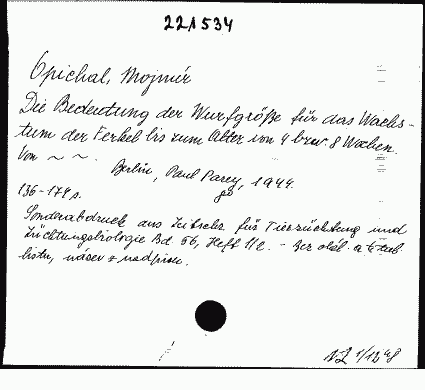 221534
Opichal, Mojmír
Die Bedeutung der Wurfgröße für das Wachs-
tum der Ferkel bis zum Alter von 4 bzw. 8 Wochen.
Von ~ ~.
Berlin, Paul Parey, 1944.
8°
136-174 s.
Sonderabdruck aus Zeitschr. für Tierzüchtung und
Züchtungsbiologie Bd. 56, Heft 1/2. - Bez obál. a tit.
listu, název z nadpisu.
1/12 48